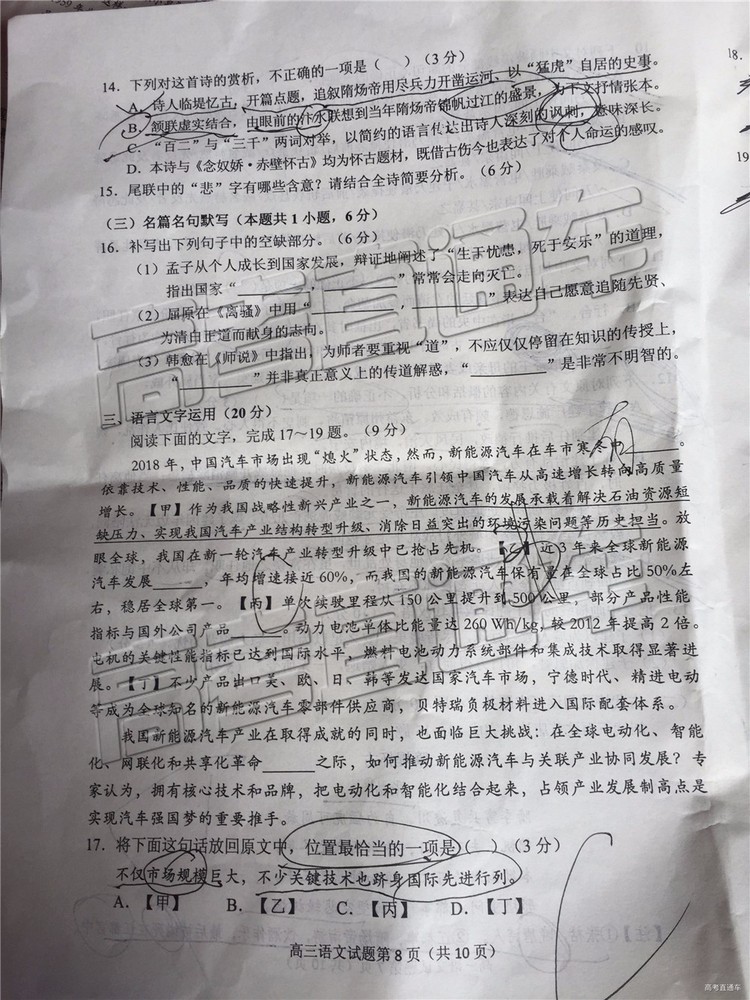 14. 下列对这首诗的赏析，不正确的一项是（　）（3 分）
A. 诗人临堤忆古，开篇点题，追叙隋炀帝用尽兵力开凿运河、以“猛虎”自居的史事。
B. 额联虚实结合，由眼前的汴水联想到当年隋炀帝锦帆过江的盛景，为下文抒情张本。
C. “百二”与“三千”两词对举，以简约的语言传达出诗人深刻的讽刺，意味深长。
D. 本诗与《念奴娇·赤壁怀古》均为怀古题材，既借古伤今也表达了对个人命运的感叹。
15. 尾联中的“悲”字有哪些含意？请结合全诗简要分析。（6 分）
（三）名篇名句默写（本题共 1 小题，6 分）
16. 补写出下列句子中的空缺部分。（6 分）
（1）孟子从个人成长到国家发展，辩证地阐述了“生于忧患，死于安乐”的道理，
指出国家“________，________”常常会走向灭亡。
（2）屈原在《离骚》中用“________，________”表达自己愿意追随先贤、
为清白正道而献身的志向。
（3）韩愈在《师说》中指出，为师者要重视“道”，不应仅仅停留在知识的传授上，
“________”并非真正意义上的传道解惑，“________”是非常不明智的。
三、语言文字运用（20 分）
阅读下面的文字，完成 17～19 题。（9 分）
2018 年，中国汽车市场出现“熄火”状态，然而，新能源汽车在车市寒冬中______。
依靠技术、性能、品质的快速提升，新能源汽车引领中国汽车从高速增长转向高质量
增长。【甲】作为我国战略性新兴产业之一，新能源汽车的发展承载着解决石油资源短
缺压力、实现我国汽车产业结构转型升级、消除日益突出的环境污染问题等历史担当。放
眼全球，我国在新一轮汽车产业转型升级中已抢占先机。【乙】近 3 年来全球新能源
汽车发展______，年均增速接近 60%，而我国的新能源汽车保有量在全球占比 50%左
右，稳居全球第一。【丙】单次续驶里程从 150 公里提升到 500 公里，部分产品性能
指标与国外公司产品______。动力电池单体比能量达 260 Wh/kg，较 2012 年提高 2 倍。
电机的关键性能指标已达到国际水平，燃料电池动力系统部件和集成技术取得显著进
展。【丁】不少产品出口美、欧、日、韩等发达国家汽车市场，宁德时代、精进电动
等成为全球知名的新能源汽车零部件供应商，贝特瑞负极材料进入国际配套体系。
我国新能源汽车产业在取得成就的同时，也面临巨大挑战：在全球电动化、智能
化、网联化和共享化革命______之际，如何推动新能源汽车与关联产业协同发展？专
家认为，拥有核心技术和品牌，把电动化和智能化结合起来，占领产业发展制高点是
实现汽车强国梦的重要推手。
17. 将下面这句话放回原文中，位置最恰当的一项是（　）（3 分）
不仅市场规模巨大，不少关键技术也跻身国际先进行列。
A. 【甲】 B. 【乙】 C. 【丙】 D. 【丁】
高三语文试题第 8 页（共 10 页）
18.
19
高考直通车
高考直通车
高考直通车